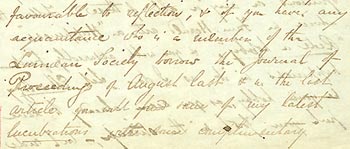 favourable to reflection, & if you have any
acquaintance who is a member of the
Linnean Society borrow the Journal of
Proceedings of August last & in the last
article you will find some of my latest
lucubrations some complimentary